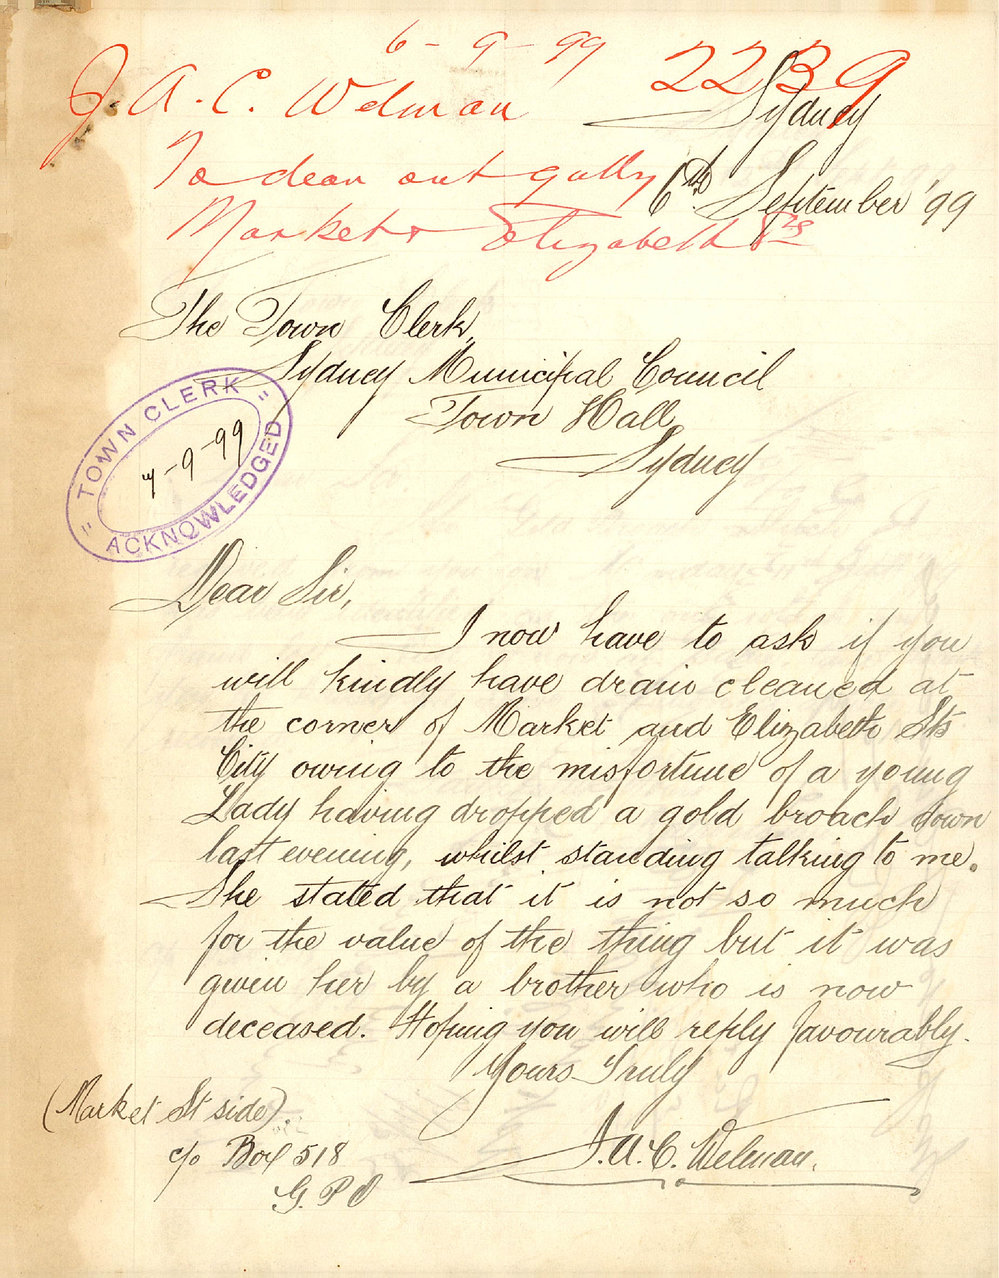 6 - 9 - 99
2239
J. A. C. Welman
To clean out gully
Market & Elizabeth Sts
Sydney
6th September '99
The Town Clerk,
Sydney Municipal Council
Town Hall
Sydney
TOWN CLERK
7-9-99
ACKNOWLEDGED
Dear Sir,
I now have to ask if you
will kindly have drain cleaned at
the corner of Market and Elizabeth Sts
City owing to the misfortune of a young
Lady having dropped a gold broach down
last evening, whilst standing talking to me.
She stated that it is not so much
for the value of the thing but it was
given her by a brother who is now
deceased. Hoping you will reply favourably.
Yours Truly
J. A. C. Welman.
(Market St side)
c/o Box 518
G. P O